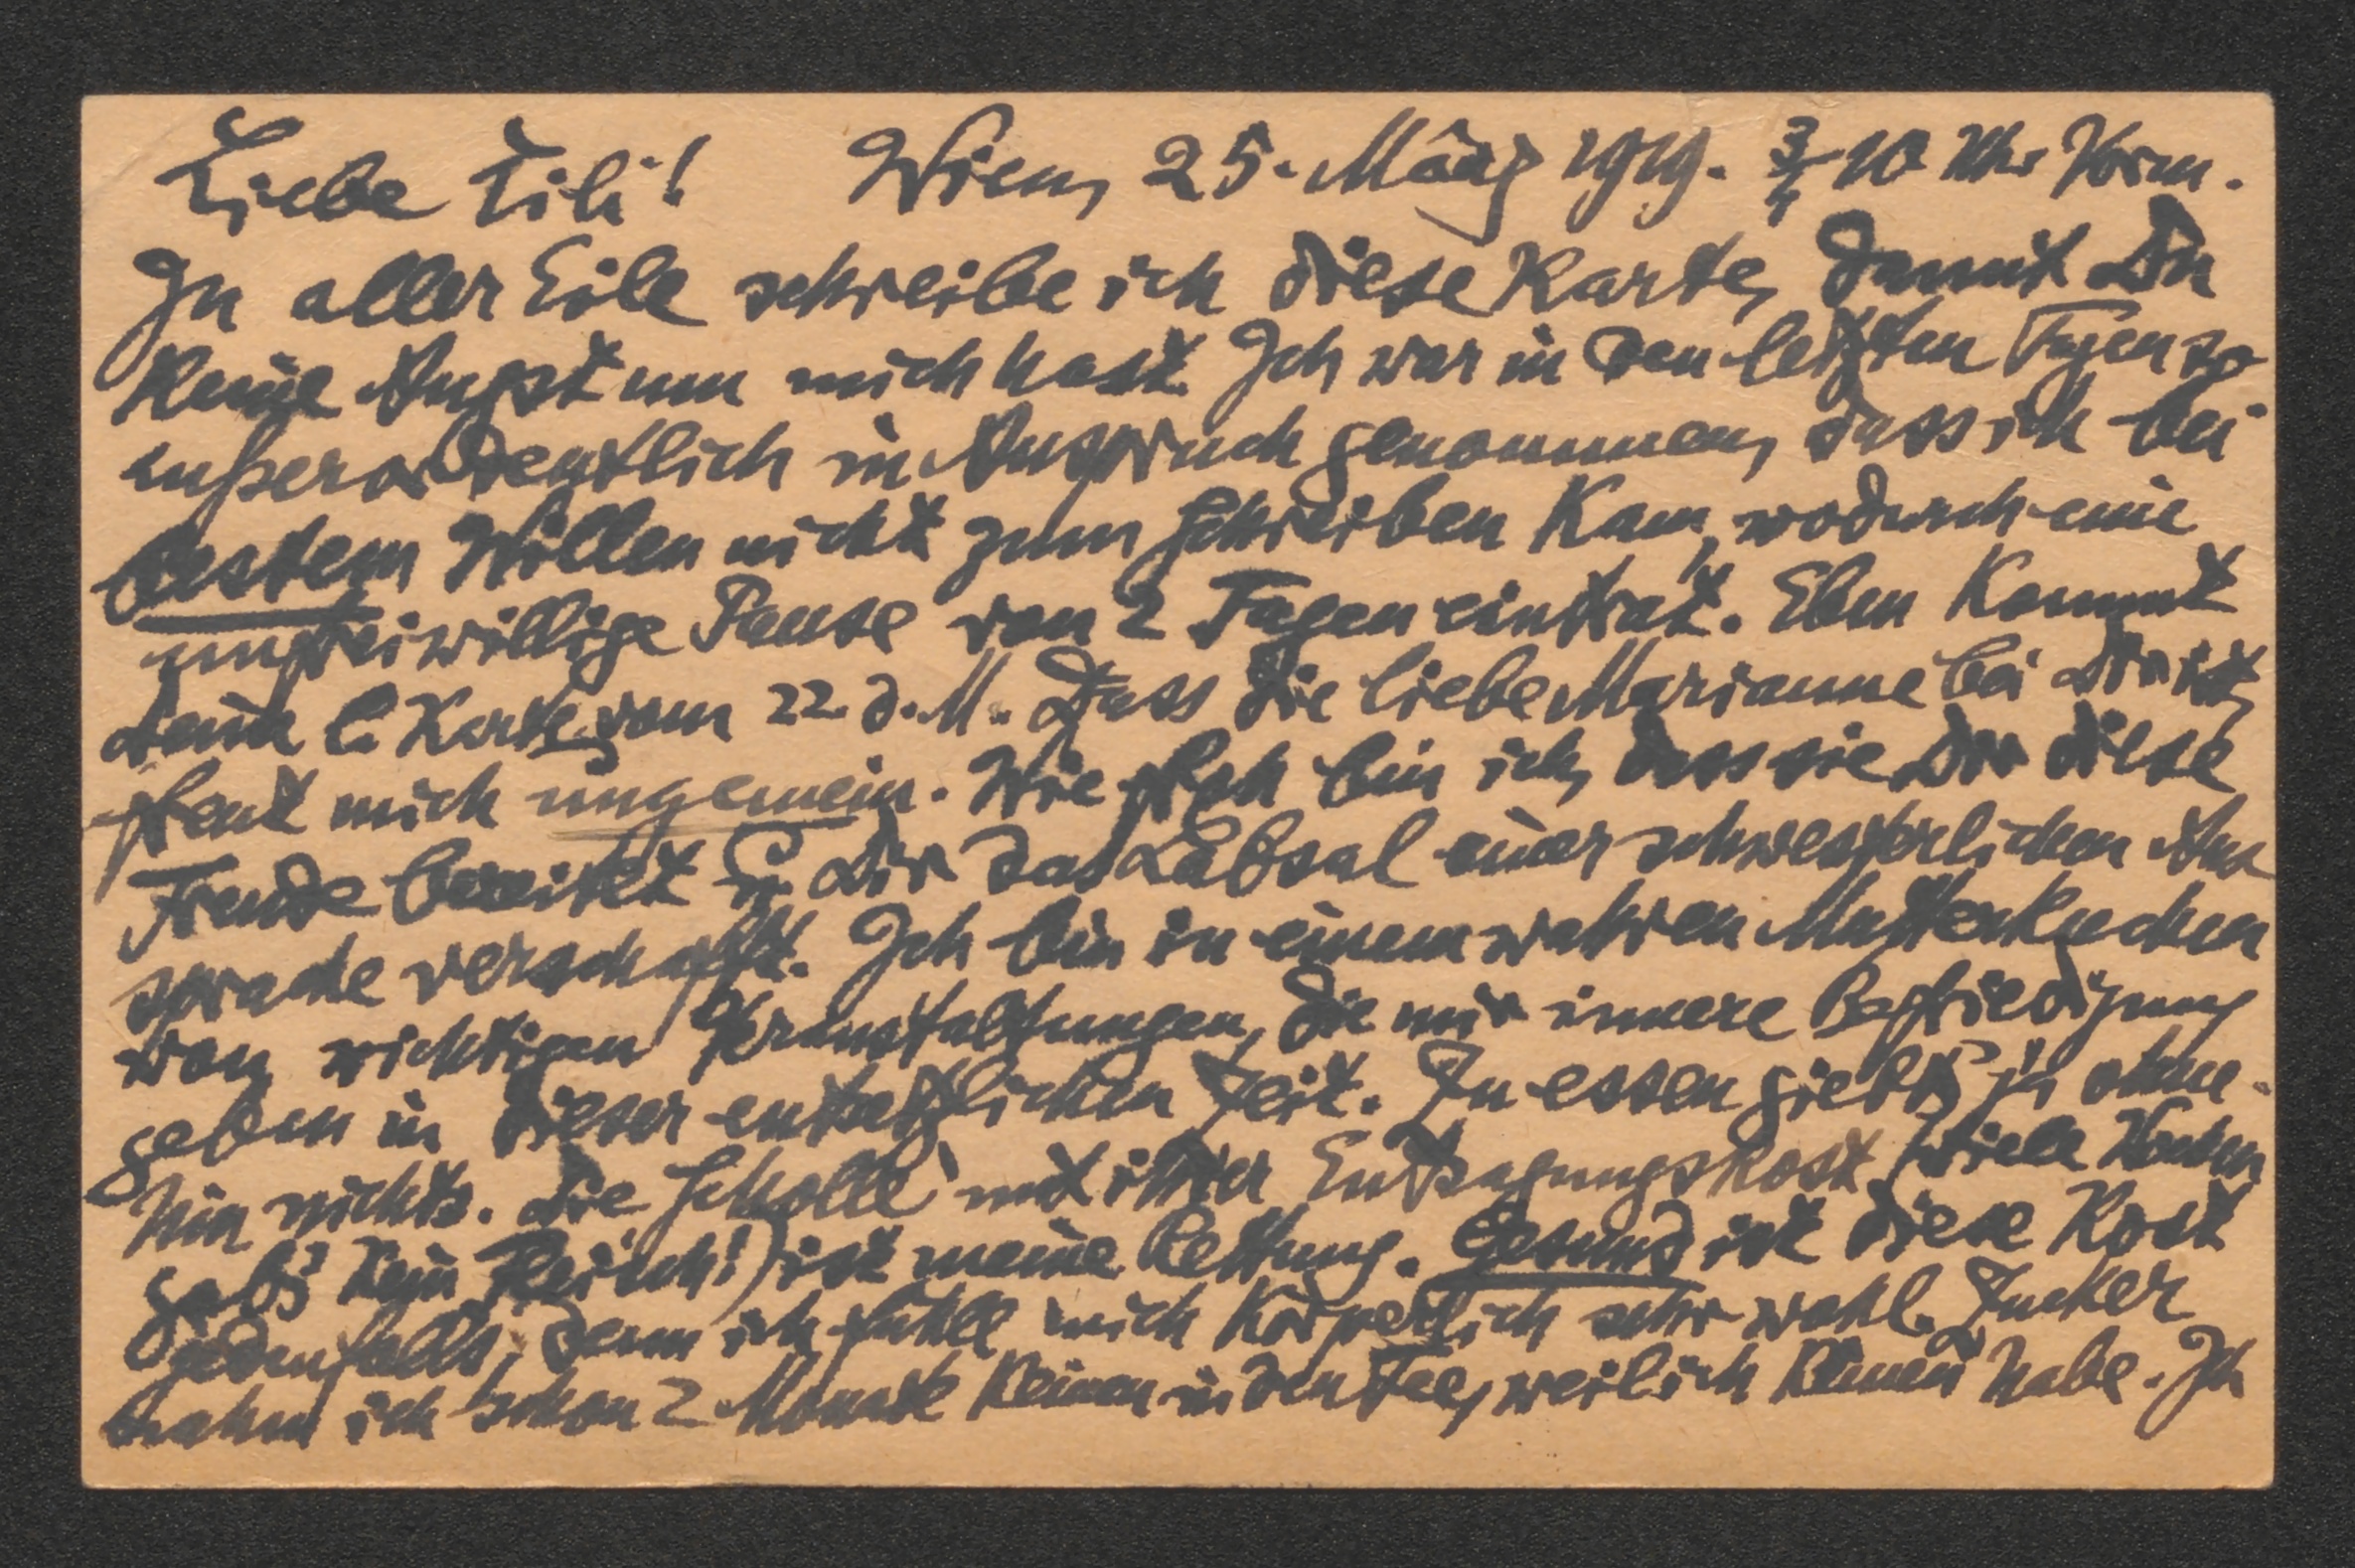 Liebe Lili! Wien, 25. März 1919. 3/4 10 Uhr Vorm.
In aller Eile schreibe ich diese Karte, damit Du
keine Angst um mich hast. Ich war in den letzten Tagen so
außerordentlich in Anspruch genommen, dass ich bei
bestem Willen nicht zum Schreiben kam, wodurch eine
unfreiwillige Pause von 2 Tagen eintrat. Eben kommt
Deine l. Karte vom 22. d. M. Dass die liebe Marianne bei Dir ist,
freut mich ungemein. Wie froh bin ich, dass sie Dir diese
Freude bereitet u. Dir das Labsal einer schwesterlichen Aus
sprache verschafft. Ich bin in einem wahren Mutterkuchen
von wichtigen Veranstaltungen, die mir innere Befriedigung
geben in dieser entsetzlichen Zeit. Zu essen giebt's ja ohne-
hin nichts. Die Scholle mit ihrer Entsagungskost (viele Wochen
gab's kein Fleisch!) ist meine Rettung. Gesund ist diese Kost
jedenfalls, denn ich fühle mich körperlich sehr wohl. Zucker
nahm ich schon 2 Monate keinen in den Tee, weil ich keinen habe. Ich